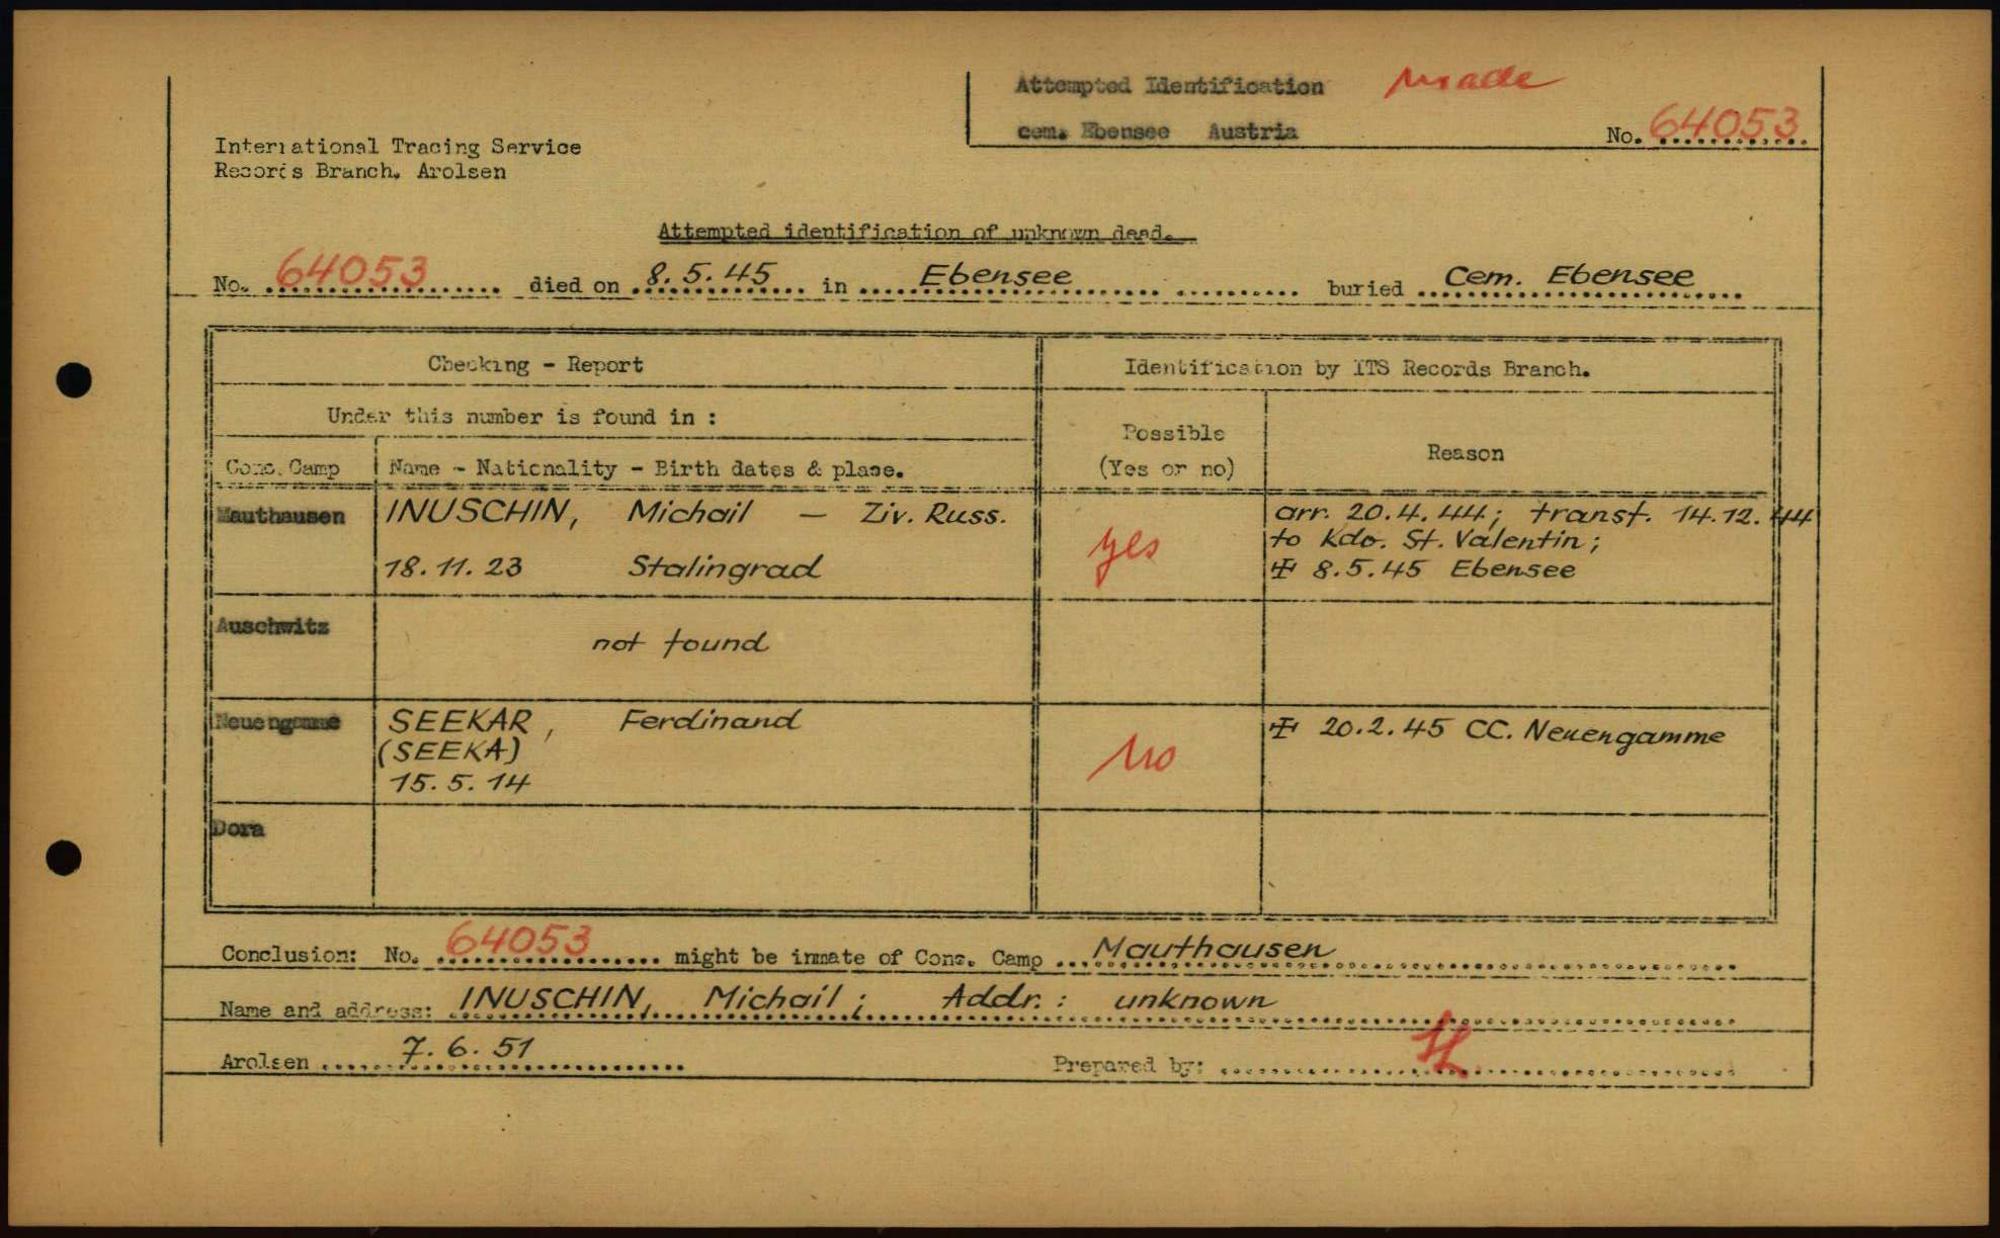 Attempted Identification made
cem. Ebensee Austria No. 64053
International Tracing Service
Records Branch, Arolsen
Attempted identification of unknown dead.
No. 64053 died on 8.5.45 in Ebensee buried Cem. Ebensee
Checking - Report
Identification by ITS Records Branch.
Under this number is found in :
Possible
(Yes or no)
Reason
Conc. Camp Name - Nationality - Birth dates & place.
Mauthausen INUSCHIN, Michail - Ziv. Russ.
18.11.23 Stalingrad
yes
arr. 20.4.44; transf. 14.12.44
to Kdo. St. Valentin;
8.5.45 Ebensee
Auschwitz
not found
Neuengamme SEEKAR, Ferdinand
(SEEKA)
15.5.14
no
20.2.45 CC. Neuengamme
Dora
Conclusion: No. 64053 might be inmate of Conc. Camp Mauthausen
Name and address: INUSCHIN, Michail; Addr.: unknown
Arolsen 7.6.51 Prepared by: